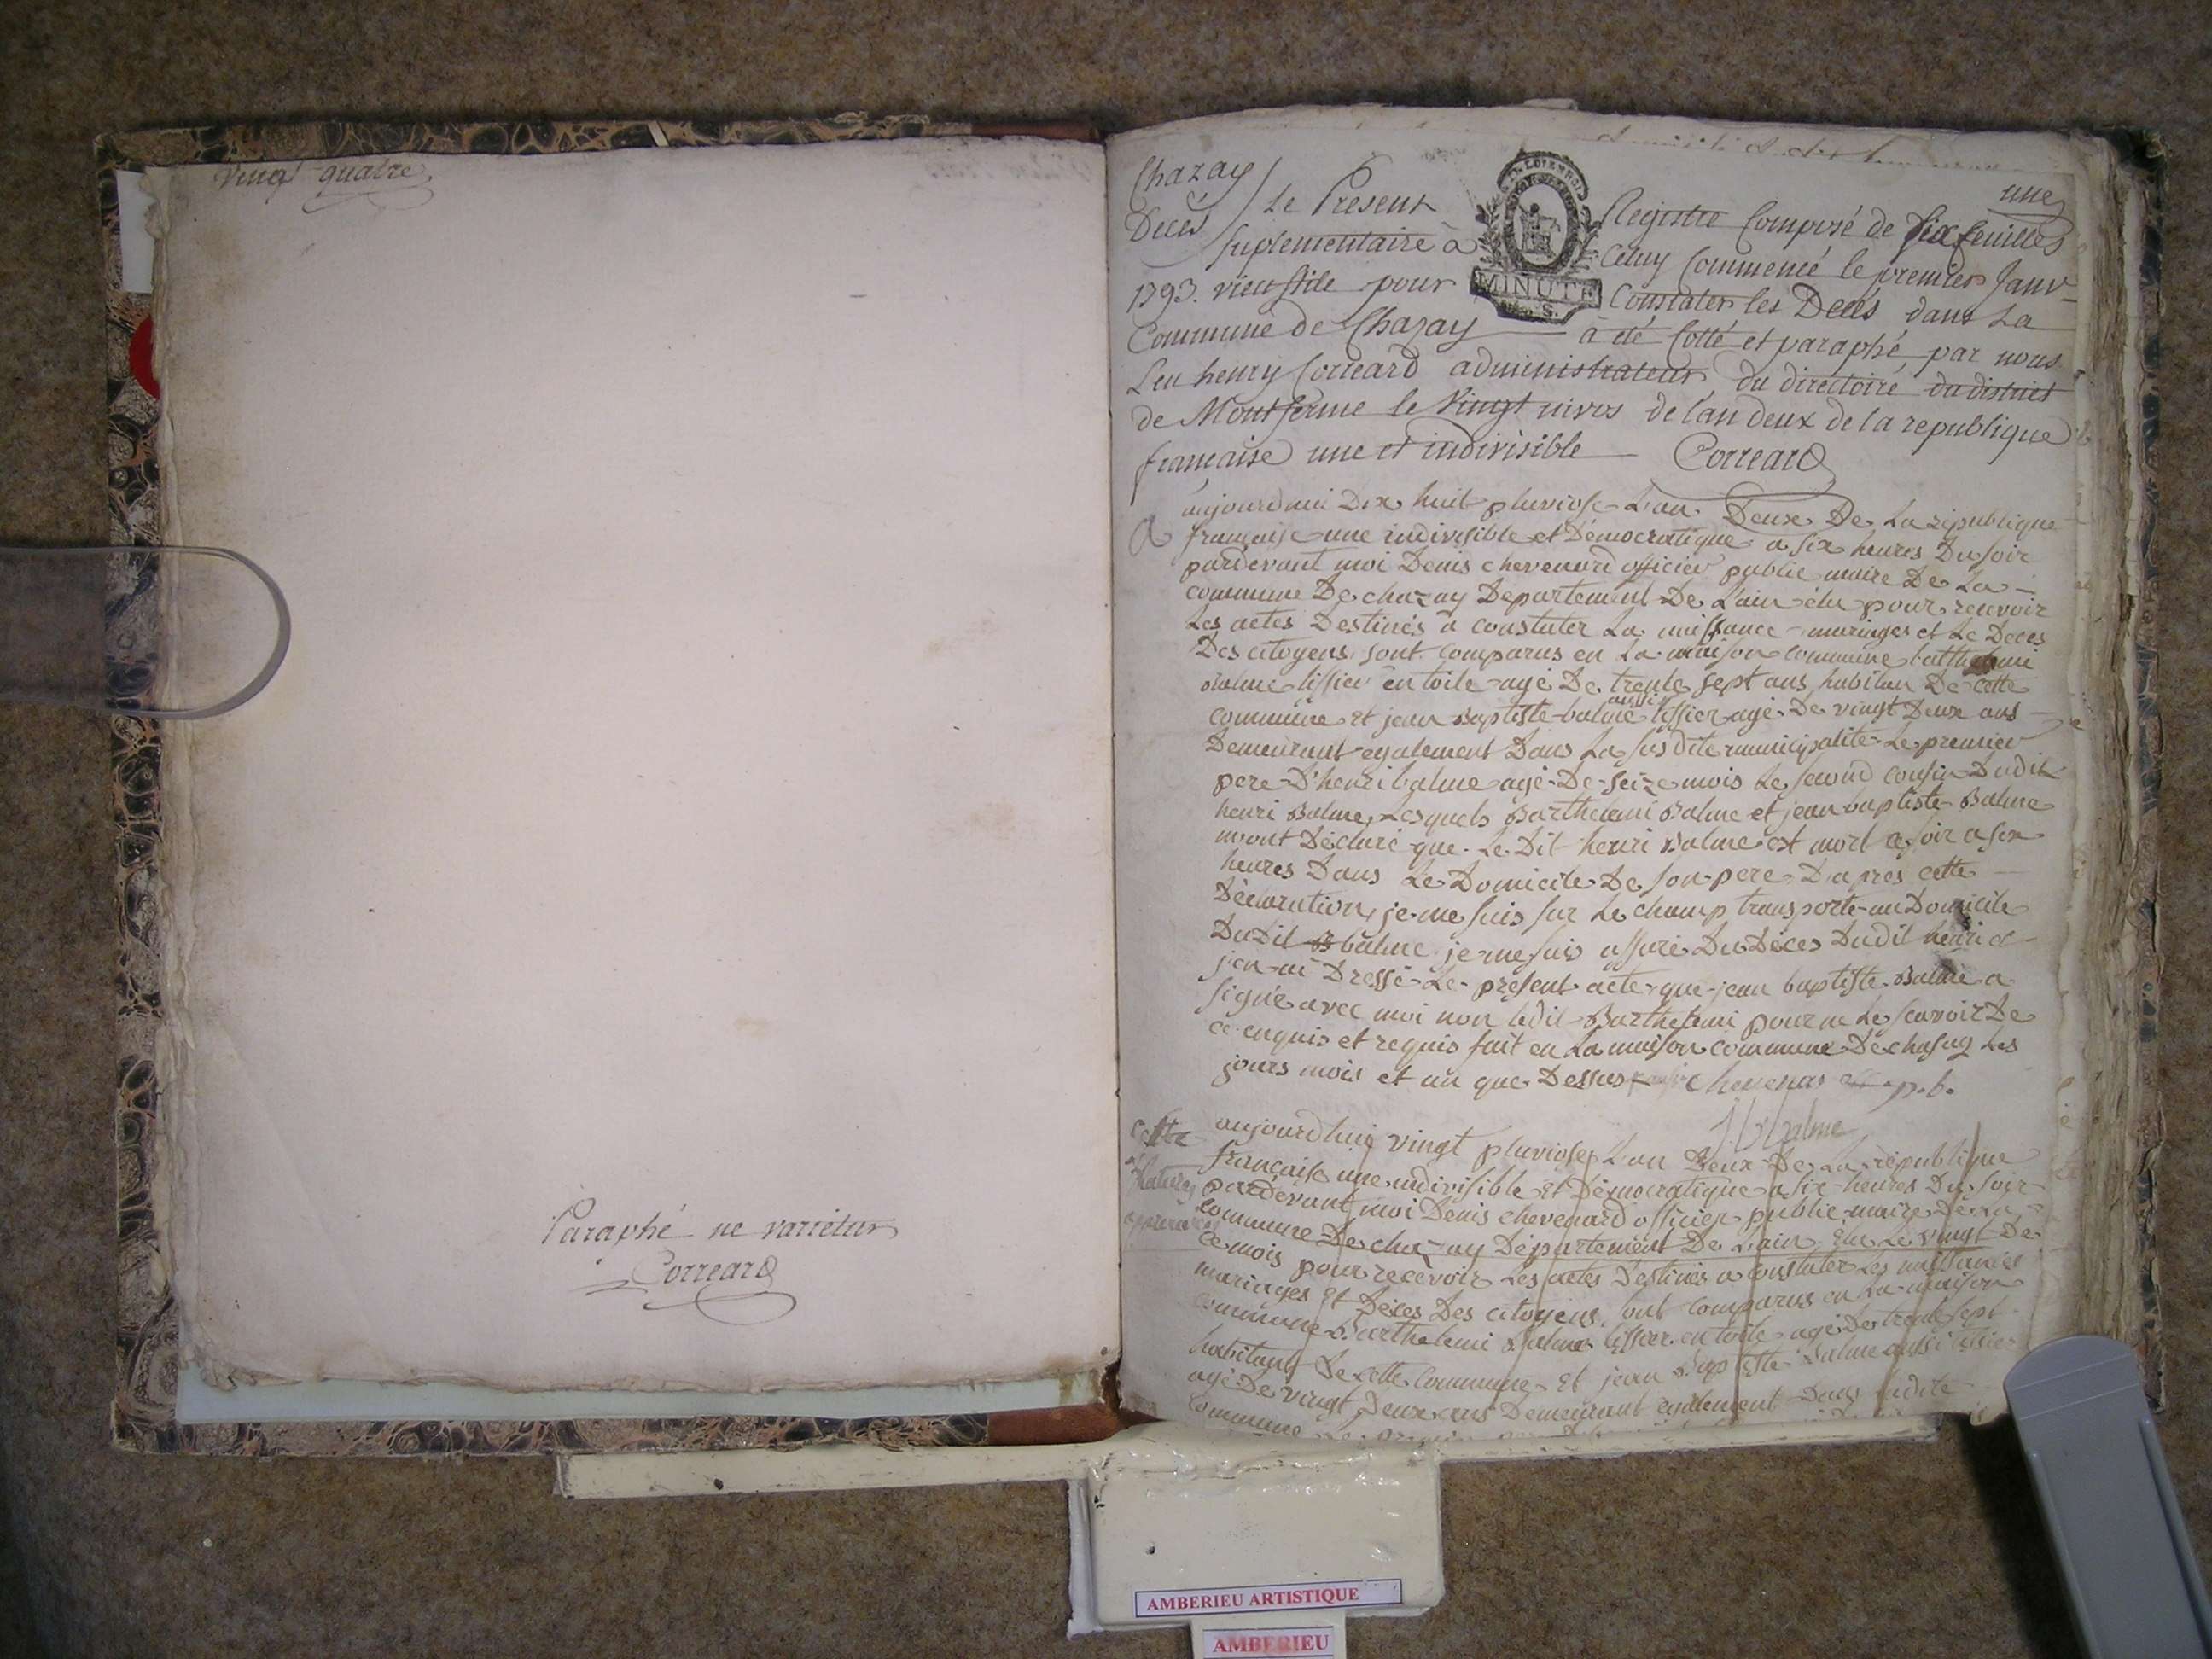 vingt quatre
Paraphé ne varietur
Correard
une
Chazay
Décès
Le Présent Registre Composé de six feuilles
suplementaire à Celuy Commencé le premier Janv
1793. vieu stile pour Constater les Décés dans La
Commune de Chazay à été Cotté et paraphé par nous
Leu henry Correard administrateur du directoire du district
de Montferme le Vingt nivos de l'an deux de la republique
française une et indivisible Correard
MINUTE
aujourdhui Dix huit pluviose L'an Deux De La republique
française une indivisible et Démocratique a six heures Du soir
pardevant moi Denis chevenard officier public maire De La
commune De chazay Departement De L'ain élu pour recevoir
Les actes Destinés a constater La naissance mariages et Le Deces
Des citoyens sont comparus en La maison commune barthelemi
balme tissier en toile agé De trente sept ans habitan De cette
commune et jean Baptiste balme aussi tissier agé De vingt Deux ans
Demeurant egalement Dans La susdite municipalité Le premier
pere D'henri balme agé De seize mois Le second cousin Dudit
henri Balme, Lesquels Barthelemi Balme et jean baptiste Balme
m'ont Déclaré que Le Dit henri Balme est mort ce soir a six
heures Dans Le Domicile De son pere D'apres cette
Déclaration, je me suis sur Le champ transporté au Domicile
DuDit balme je me suis assuré Du Déces Dudit henri et
j'en ai Dressé Le présent acte que jean baptiste Balme a
signé avec moi non ledit Barthelemi pour ne Le scavoir De
ce enquis et requis fait en La maison commune De chasay Les
jours mois et an que Dessus chevenar p.b.
J B balme
aujourdhui vingt pluviose L'an Deux De La république
française une indivisible et Démocratique a six heures Du soir
pardevant moi Denis chevenard officier public maire De La
commune De chazay Département De L'ain élu Le vingt De
ce mois pour recevoir Les actes Destinés a constater Les naissances
mariages et Déces Des citoyens, sont comparus en La maison
commune Barthelemi Balme tissier en toile agé De trente sept
habitant De cette Commune et jean Baptiste Balme aussi tissier
agé De vingt Deux ans Demeurant egalement Dans ladite
commune Le premier
AMBERIEU ARTISTIQUE
AMBERIEU